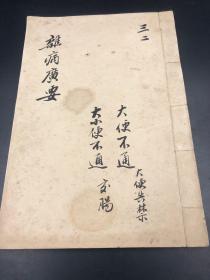 三二
大便失禁
大便不通
大小便不通 交腸
雜病廣要